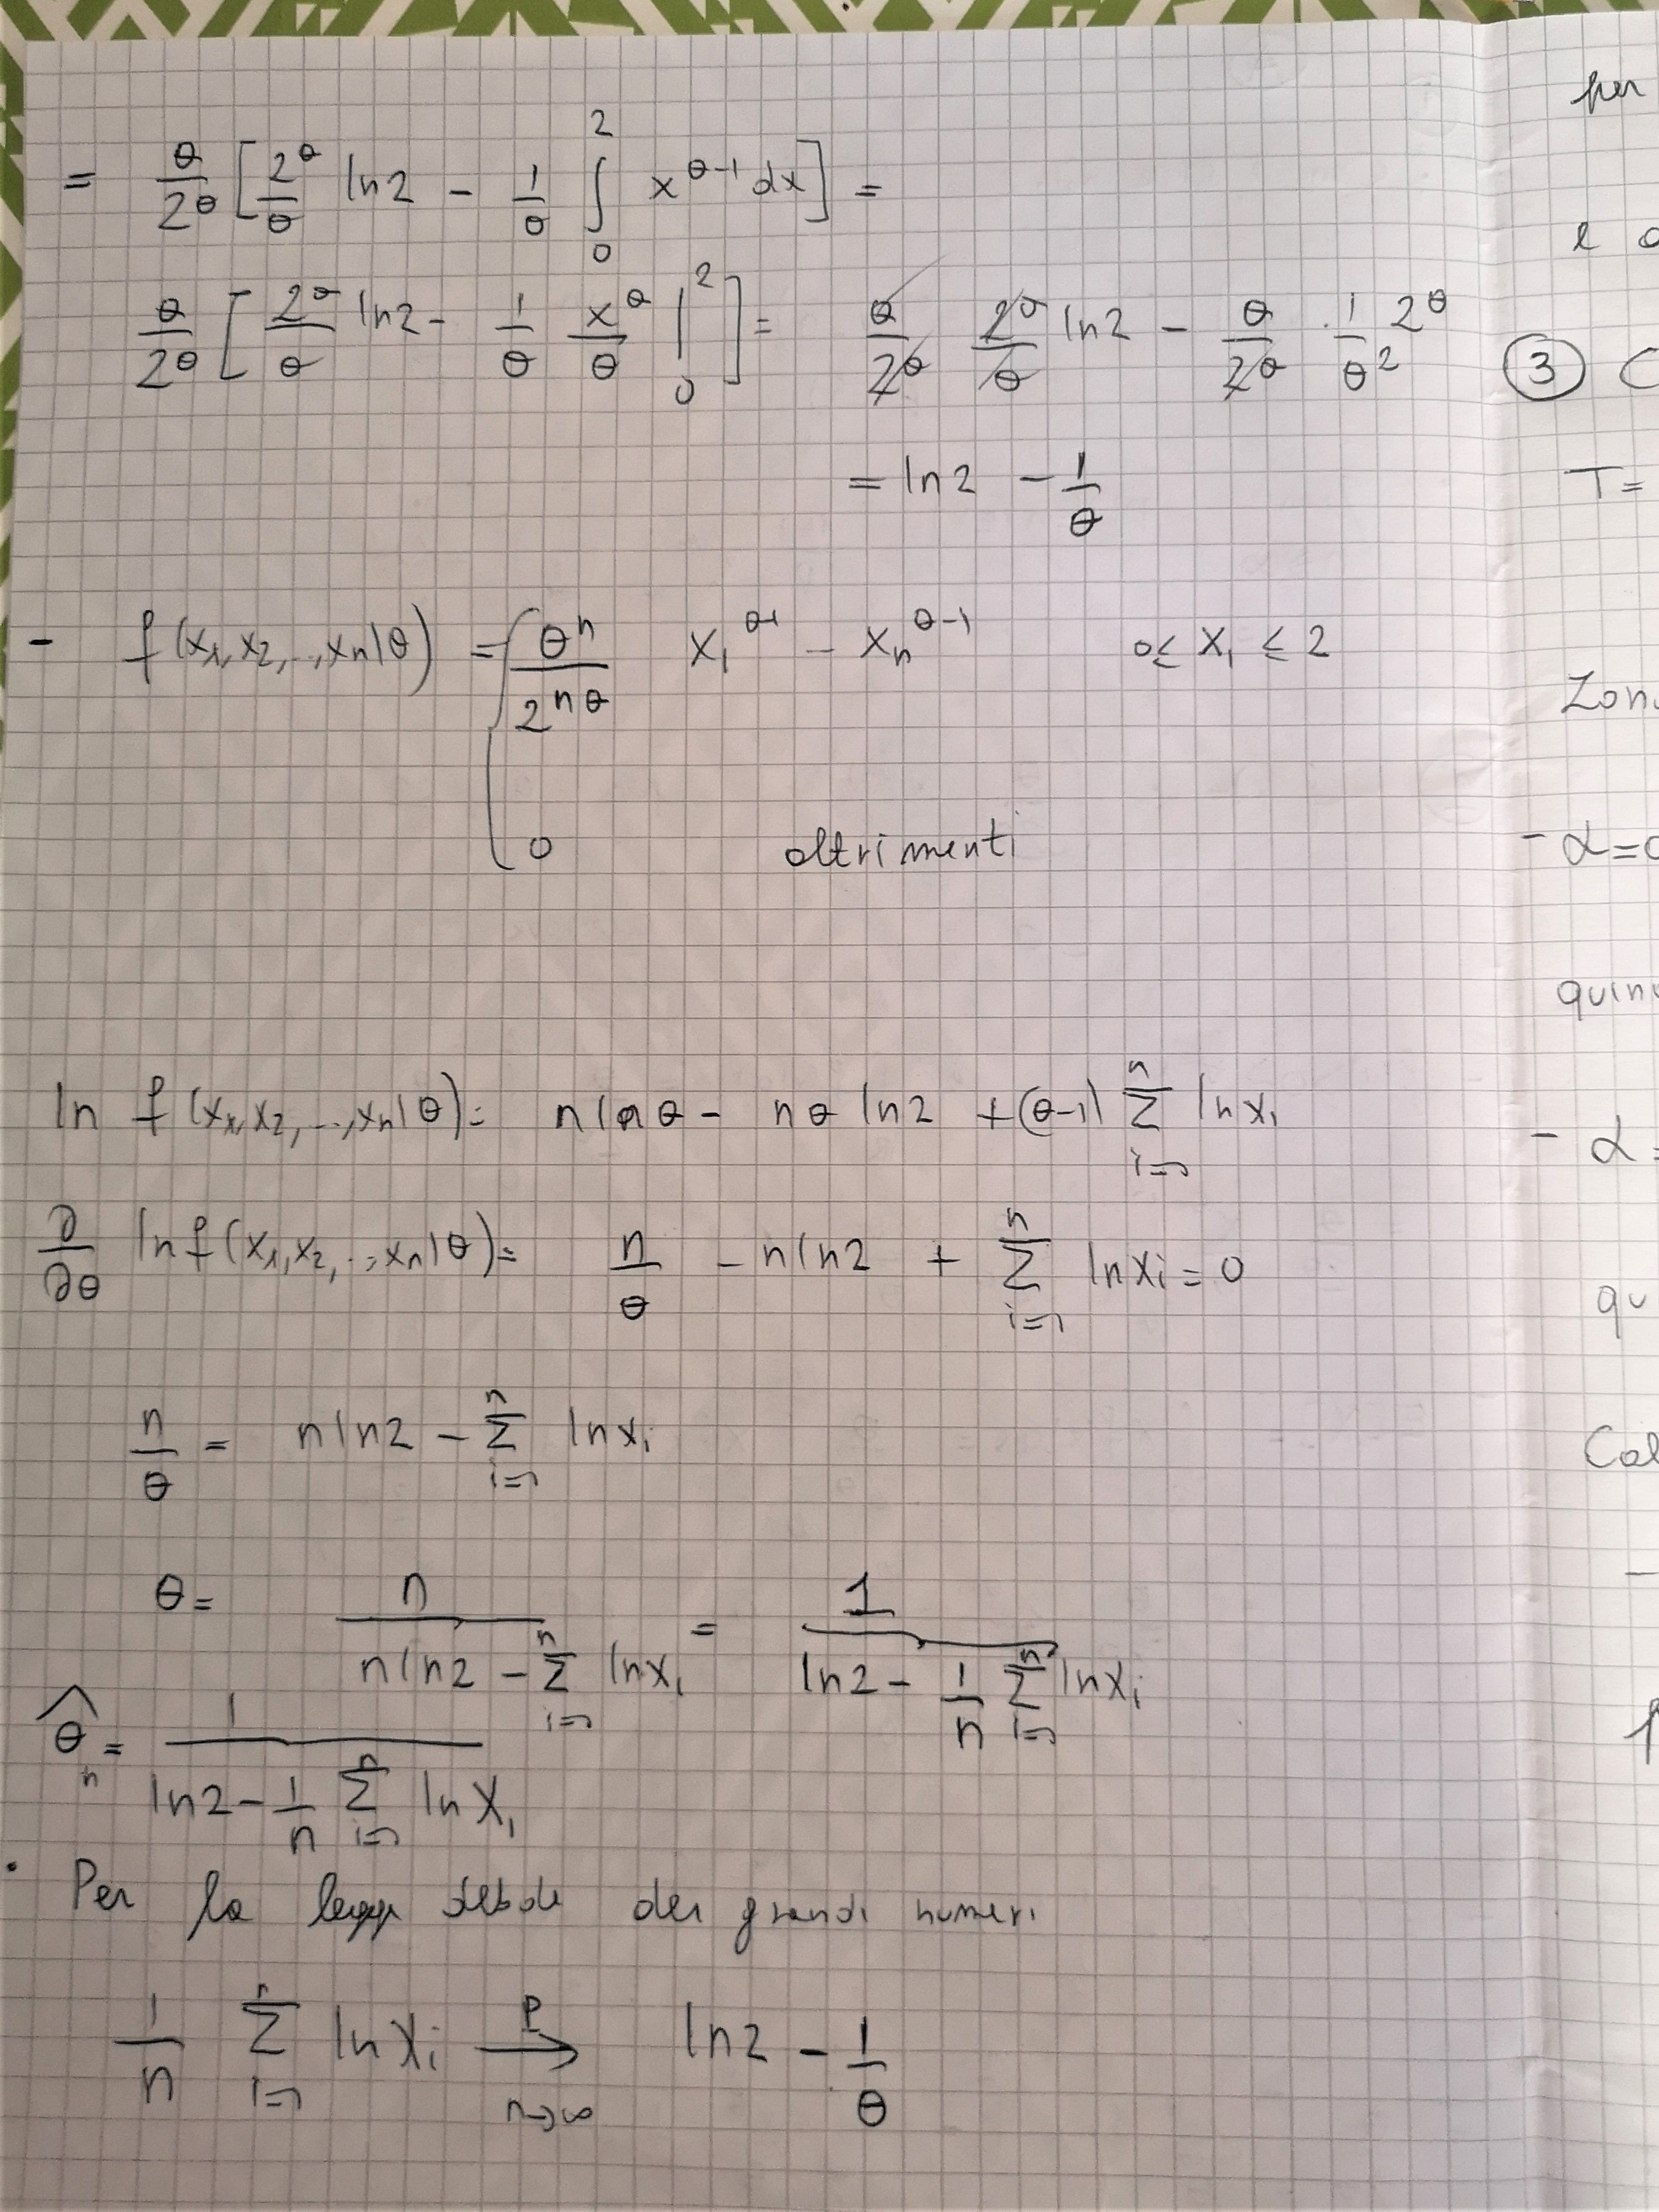 = θ/2^θ [ 2^θ/θ ln2 - 1/θ ∫_0^2 x^{θ-1} dx ] =
θ/2^θ [ 2^θ/θ ln2 - 1/θ x^θ/θ |_0^2 ] = θ/2^θ 2^θ/θ ln2 - θ/2^θ · 1/θ^2 2^θ
= ln2 - 1/θ
- f(x_1, x_2, .., x_n|θ) = { θ^n/2^{nθ} x_1^{θ-1} - x_n^{θ-1} 0 ≤ x_i ≤ 2
0 altrimenti
ln f(x_1, x_2, .., x_n|θ) = n ln θ - nθ ln2 + (θ-1) Σ_{i=1}^n ln x_i
∂/∂θ ln f(x_1, x_2, .., x_n|θ) = n/θ - n ln2 + Σ_{i=1}^n ln x_i = 0
n/θ = n ln2 - Σ_{i=1}^n ln x_i
θ = n/(n ln2 - Σ_{i=1}^n ln x_i) = 1/(ln2 - 1/n Σ_{i=1}^n ln x_i)
θ̂_n = 1/(ln2 - 1/n Σ_{i=1}^n ln X_i)
· Per la legge debole dei grandi numeri
1/n Σ_{i=1}^n ln X_i →^P_{n→∞} ln2 - 1/θ
per
e
③ C
T=
Zon
- α=0
quin
- α=
qu
Cal
-